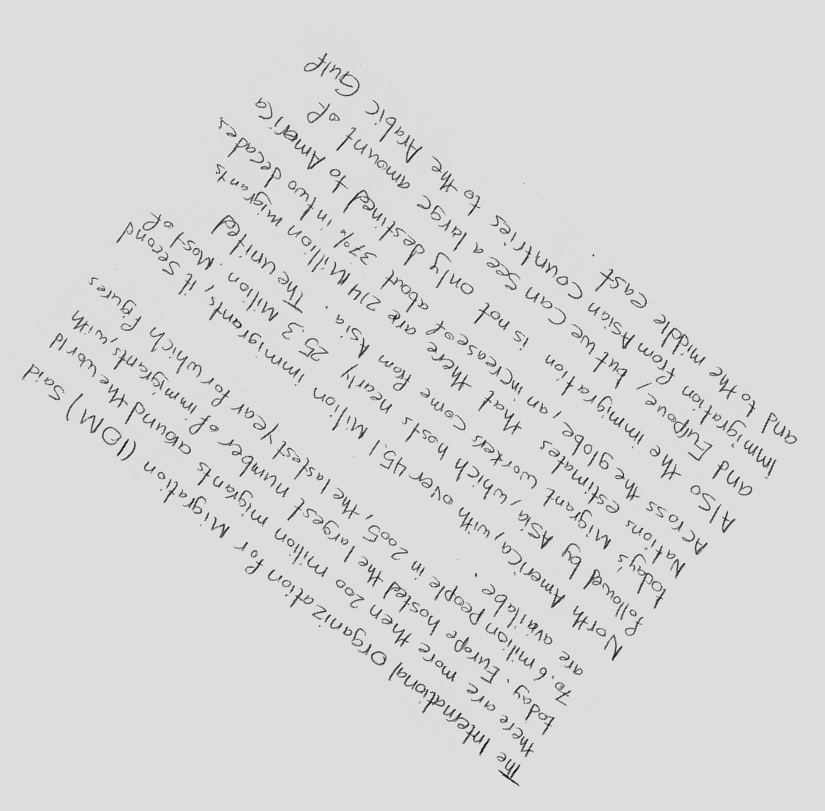 The International Organization for Migration (IOM) said
there are more then 200 milion migrants around the world
today. Europe hosted the largest number of immigrants, with
70.6 milion people in 2005, the lastest year for which figures
are available.
North America, with over 45.1 milion immigrants, it second
followed by Asia, which hosts nearly 25.3 milion. Most of
today's migrant workers come from Asia. The united
Nations estimates that there are 214 million migrants
Across the globe, an increase of about 37% in two decades
Also the immigration is not only destined to America
and Eurpoue, but we can see a large amount of
immigration from Asian countries to the Arabic Gulf
and to the middle east.